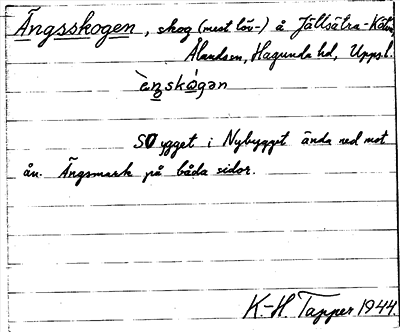 Ängsskogen, skog (mest löv-) å Jällsätra-Kättsta,
Ålandsn, Hagunda hd, Upps.l.
ὲŋskὼgən
SO ygget i Nybygget ända ned mot
ån. Ängsmark på båda sidor.
K-H. Tapper 1944.